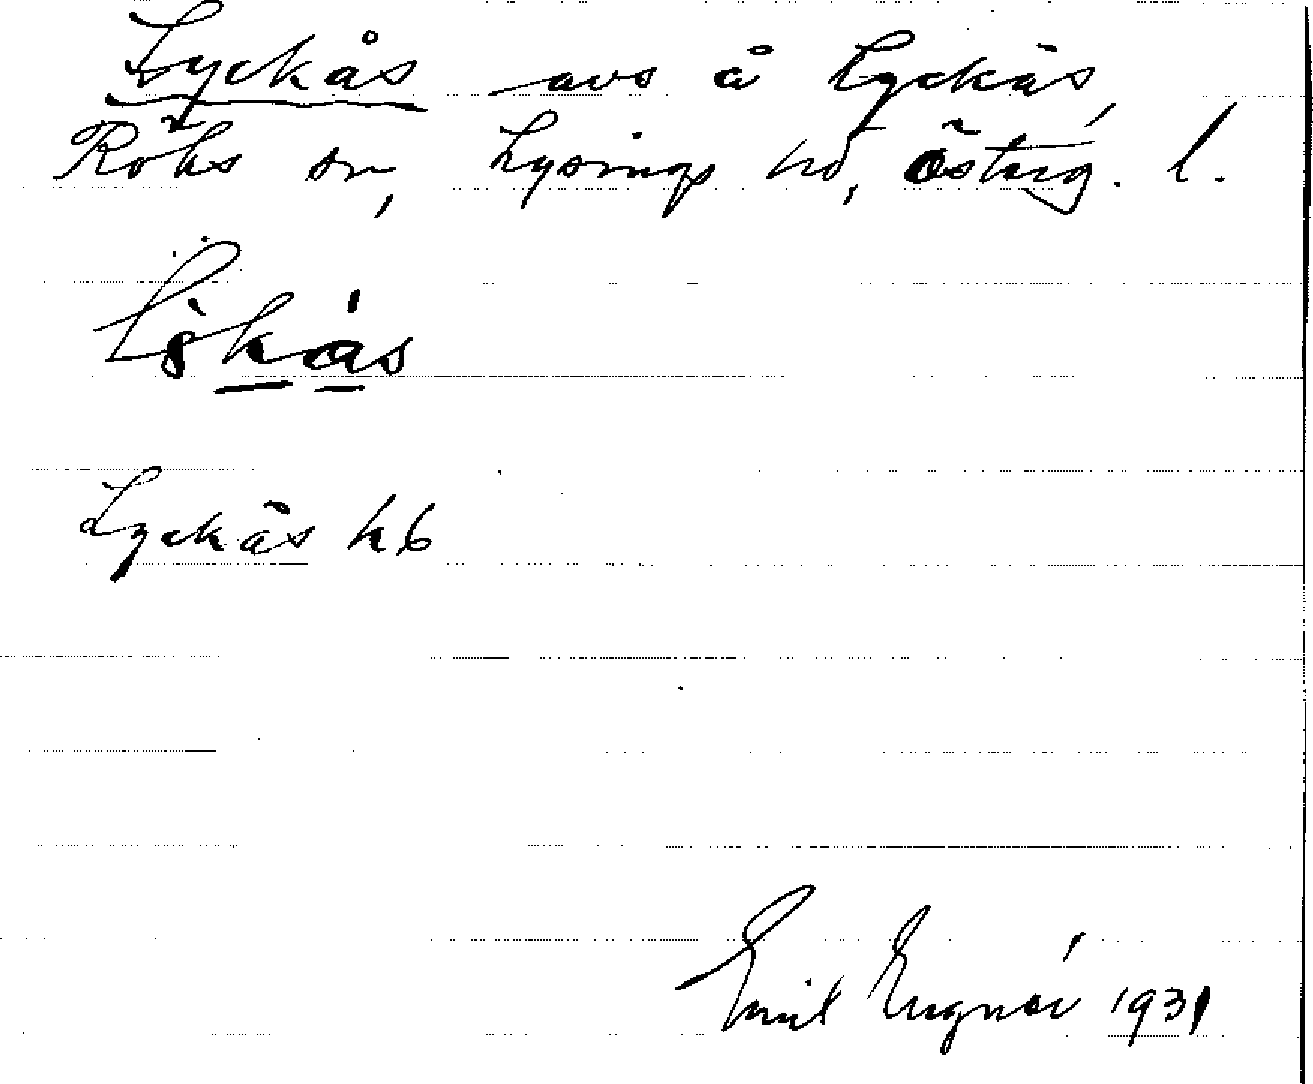 Lyckås avs å Lyckås,
Röks sn, Lysings hd, Österg. l.
Lyckås kb
Emil 1931